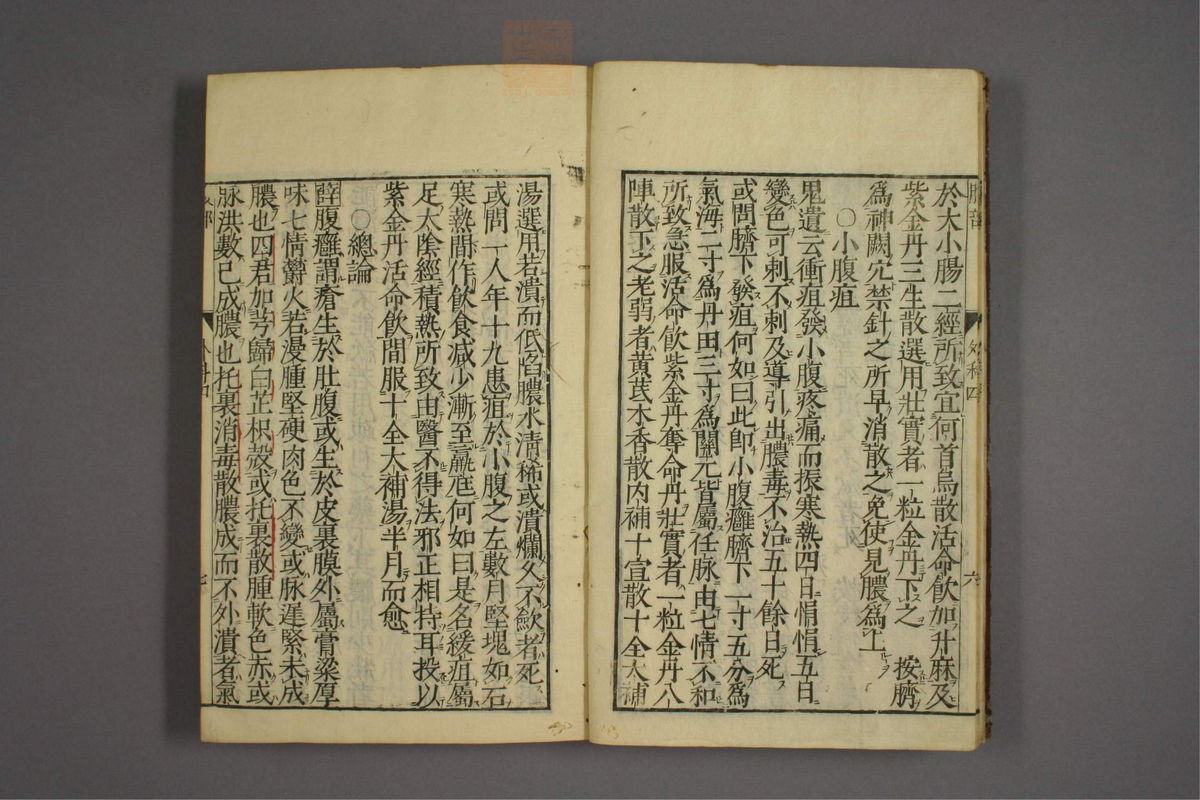 於大小腸二經所致宜何首烏散活命飲加升麻及
紫金丹三生散選用壯實者一粒金丹下之 按臍
爲神闕穴禁針之所早消散之免使見膿爲上
〇小腹疽
鬼遺云衝疽發小腹疼痛而振寒熱四日悁悁五日
變色可刺不刺及導引出膿毒不治五十餘日死
或問臍下發疽何如曰此卽小腹癰臍下一寸五分爲
氣海二寸爲丹田三寸爲關元皆屬任脉由七情不和
所致急服活命飲紫金丹奪命丹壯實者一粒金丹八
陣散下之老弱者黃芪木香散內補十宣散十全大補
湯選用若潰而低陷膿水清稀或潰爛久不歛者死
或問一人年十九患疽於小腹之左數月堅塊如石
寒熱間作飲食減少漸至羸尫何如曰是名緩疽屬
足太陰經積熱所致由醫不得法邪正相持耳投以
紫金丹活命飲間服十全大補湯半月而愈
〇總論
薛腹癰謂瘡生於肚腹或生於皮裏膜外屬膏粱厚
味七情欝火若漫腫堅硬肉色不變或脉遲緊未成
膿也四君加芎歸白芷枳殼或托裏散腫軟色赤或
脉洪數已成膿也托裏消毒散膿成而不外潰者氣
外科四
六